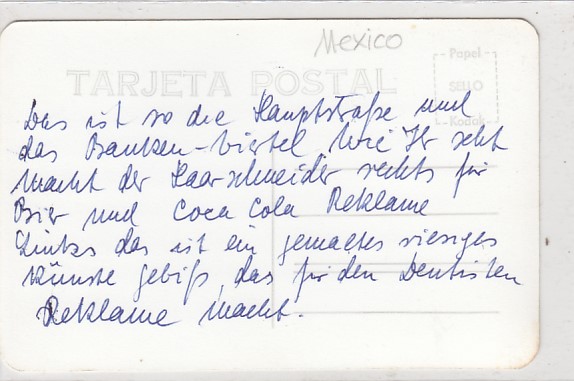 Mexico
TARJETA POSTAL
Papel
SELLO
Kodak
Das ist so die Hauptstraße und
das Banken-Viertel Wie Ihr seht
macht der Haarschneider rechts für
Bier und Coca Cola Reklame
Links das ist ein gemaltes riesiges
künste gebiß, das für den Dentisten
Reklame macht.